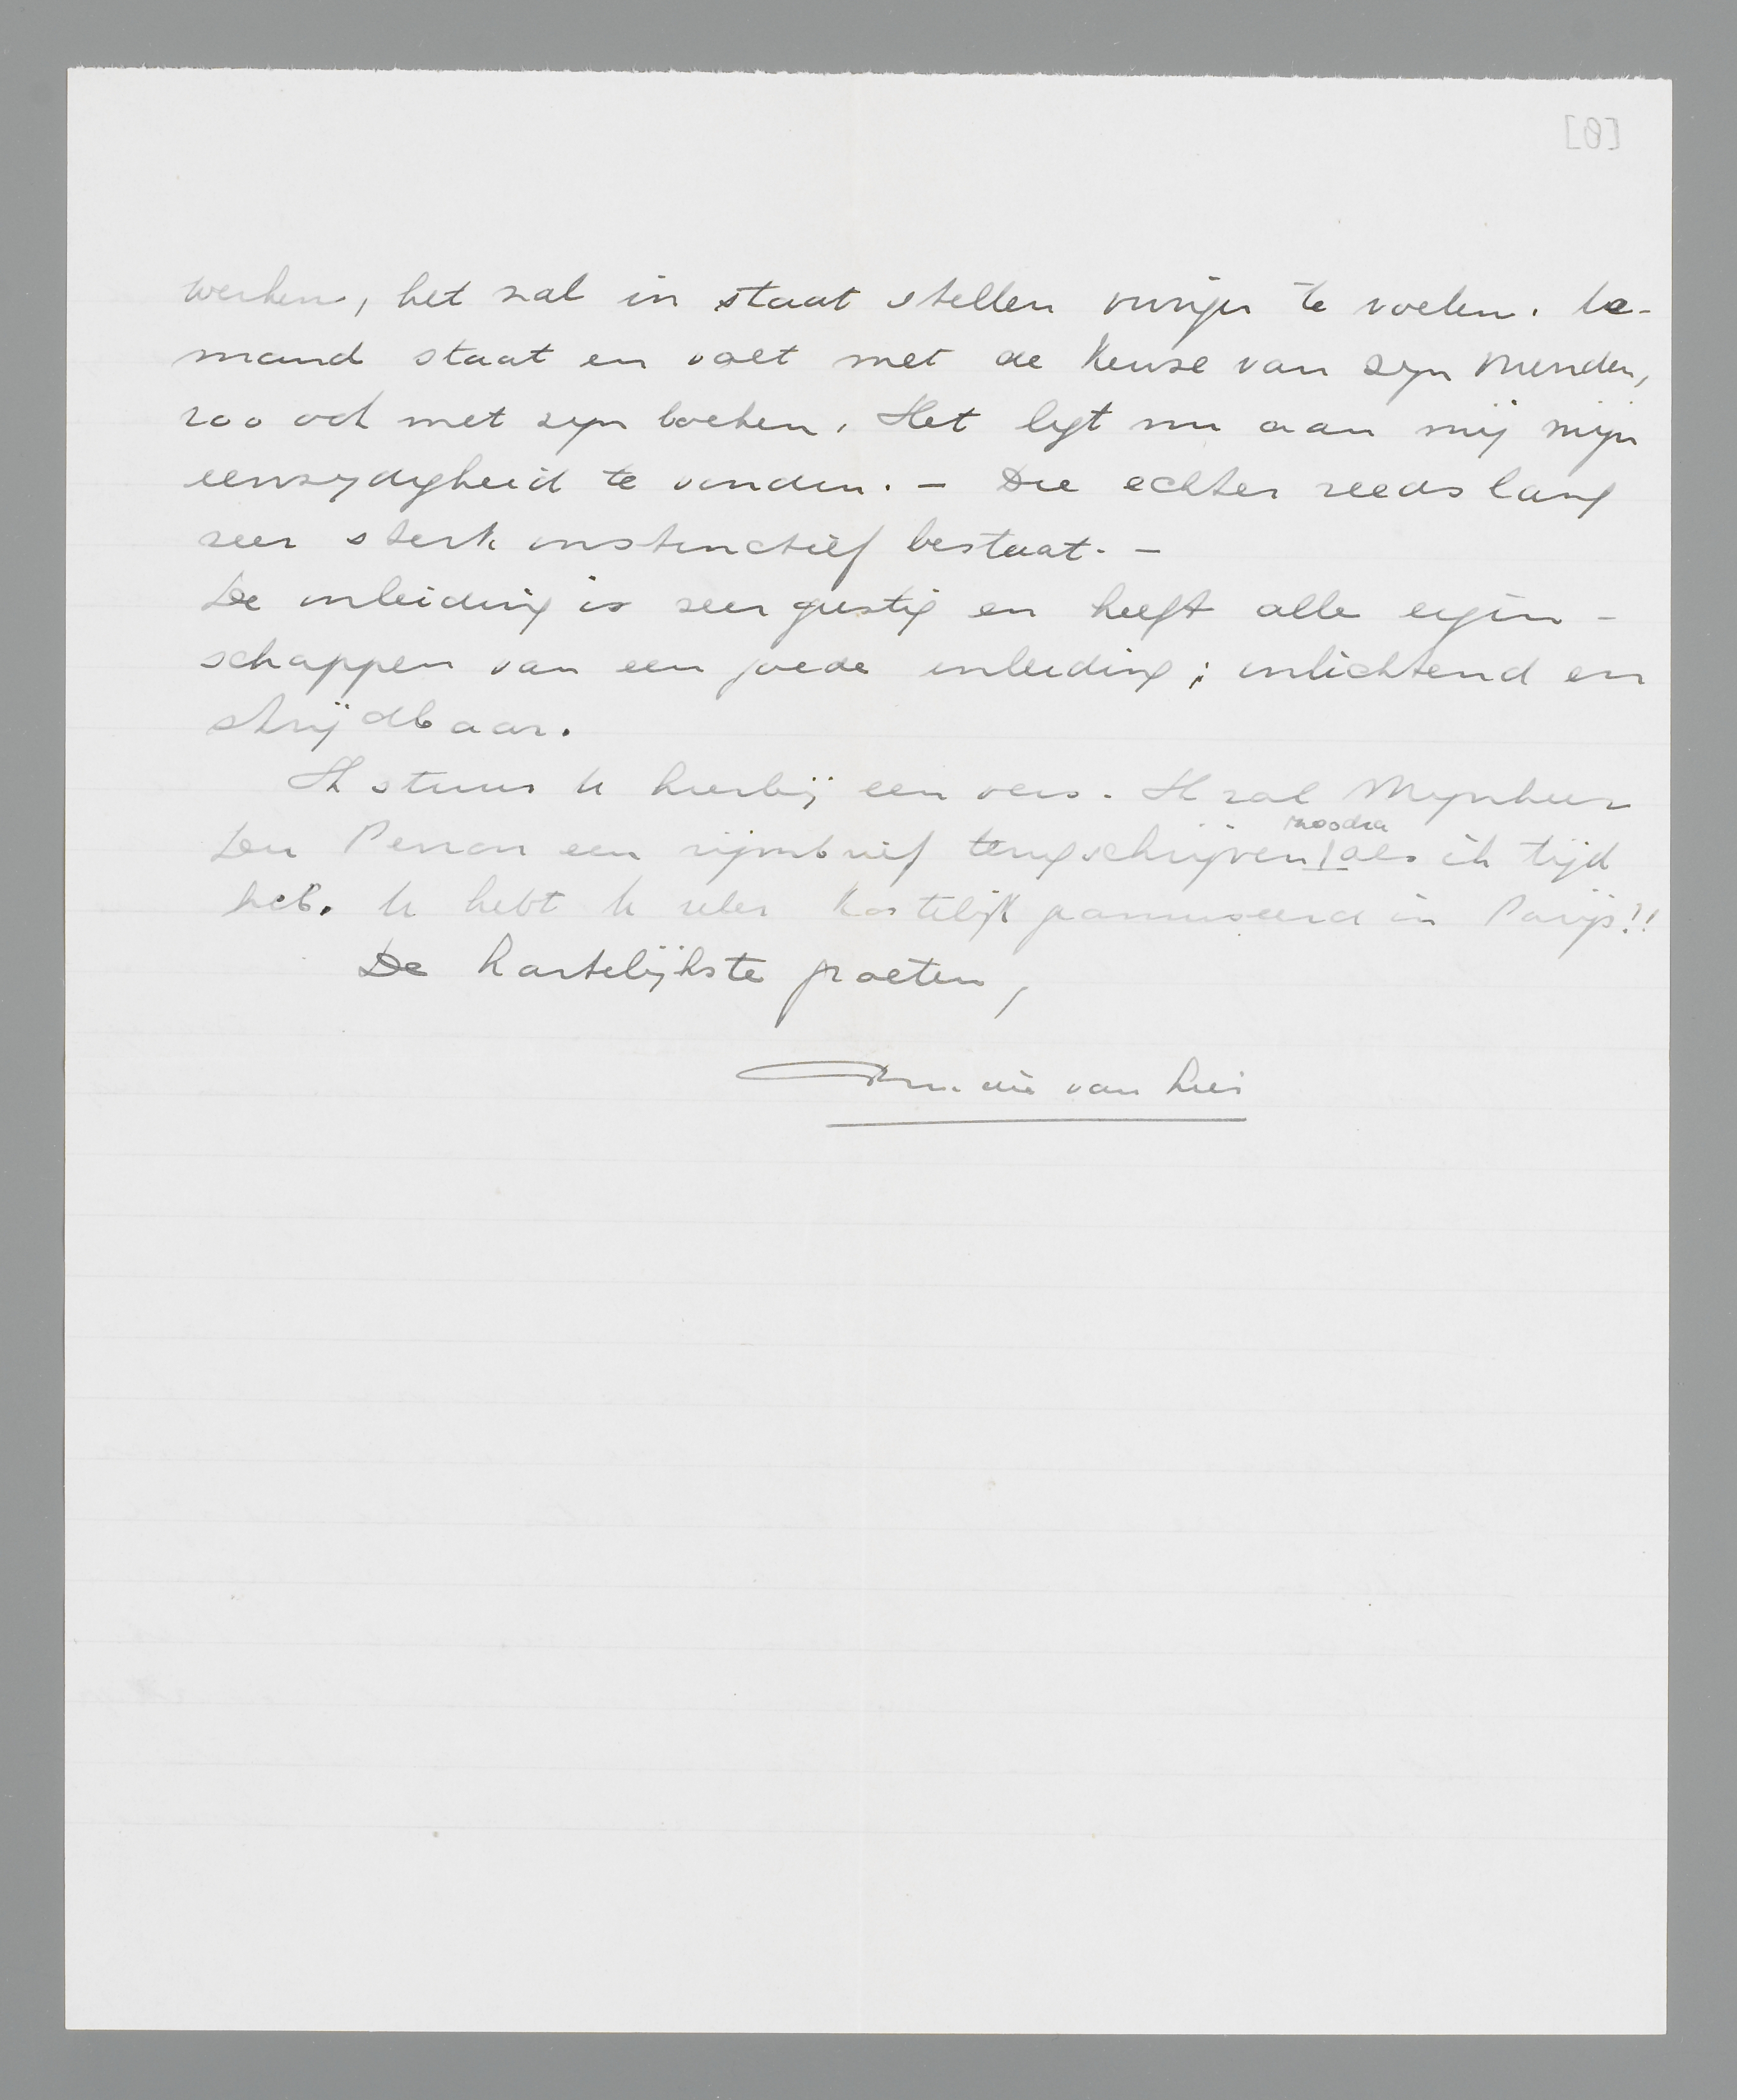 [8]
werken, het zal in staat stellen vuriger te voelen. Ie-
mand staat en valt met de keuse van zyn vrienden,
zoo ook met zyn boeken. Het ligt nu aan mij mijn
eenzydigheid te vinden. — Die echter reeds lang
zeer sterk instinctief bestaat. —
De inleiding is zeer gustig en heeft alle eigen-
schappen van een goede inleiding; inlichtend en
strijdbaar.
Ik stuur U hierbij een vers. Ik zal Mynheer
Du Perron een rijmbrief terugschrijven zoodra als ik tijd
heb. U hebt U zeker kostelijk geamuseerd in Parijs!!
De hartelijkste groeten,
van hier